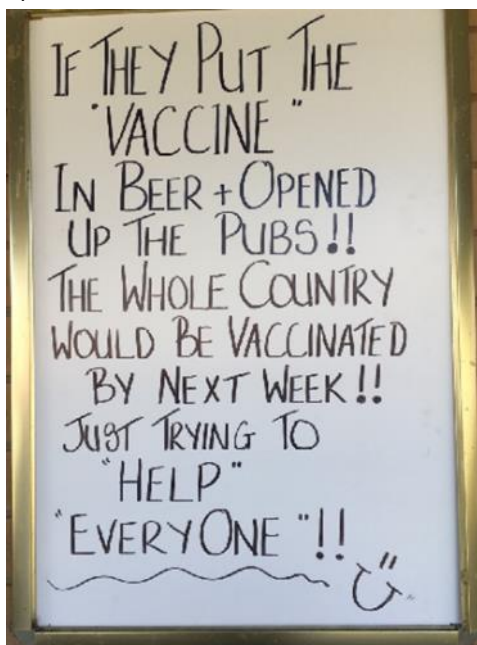 IF THEY PUT THE
"VACCINE"
IN BEER + OPENED
UP THE PUBS!!
THE WHOLE COUNTRY
WOULD BE VACCINATED
BY NEXT WEEK!!
JUST TRYING TO
"HELP"
"EVERYONE"!!